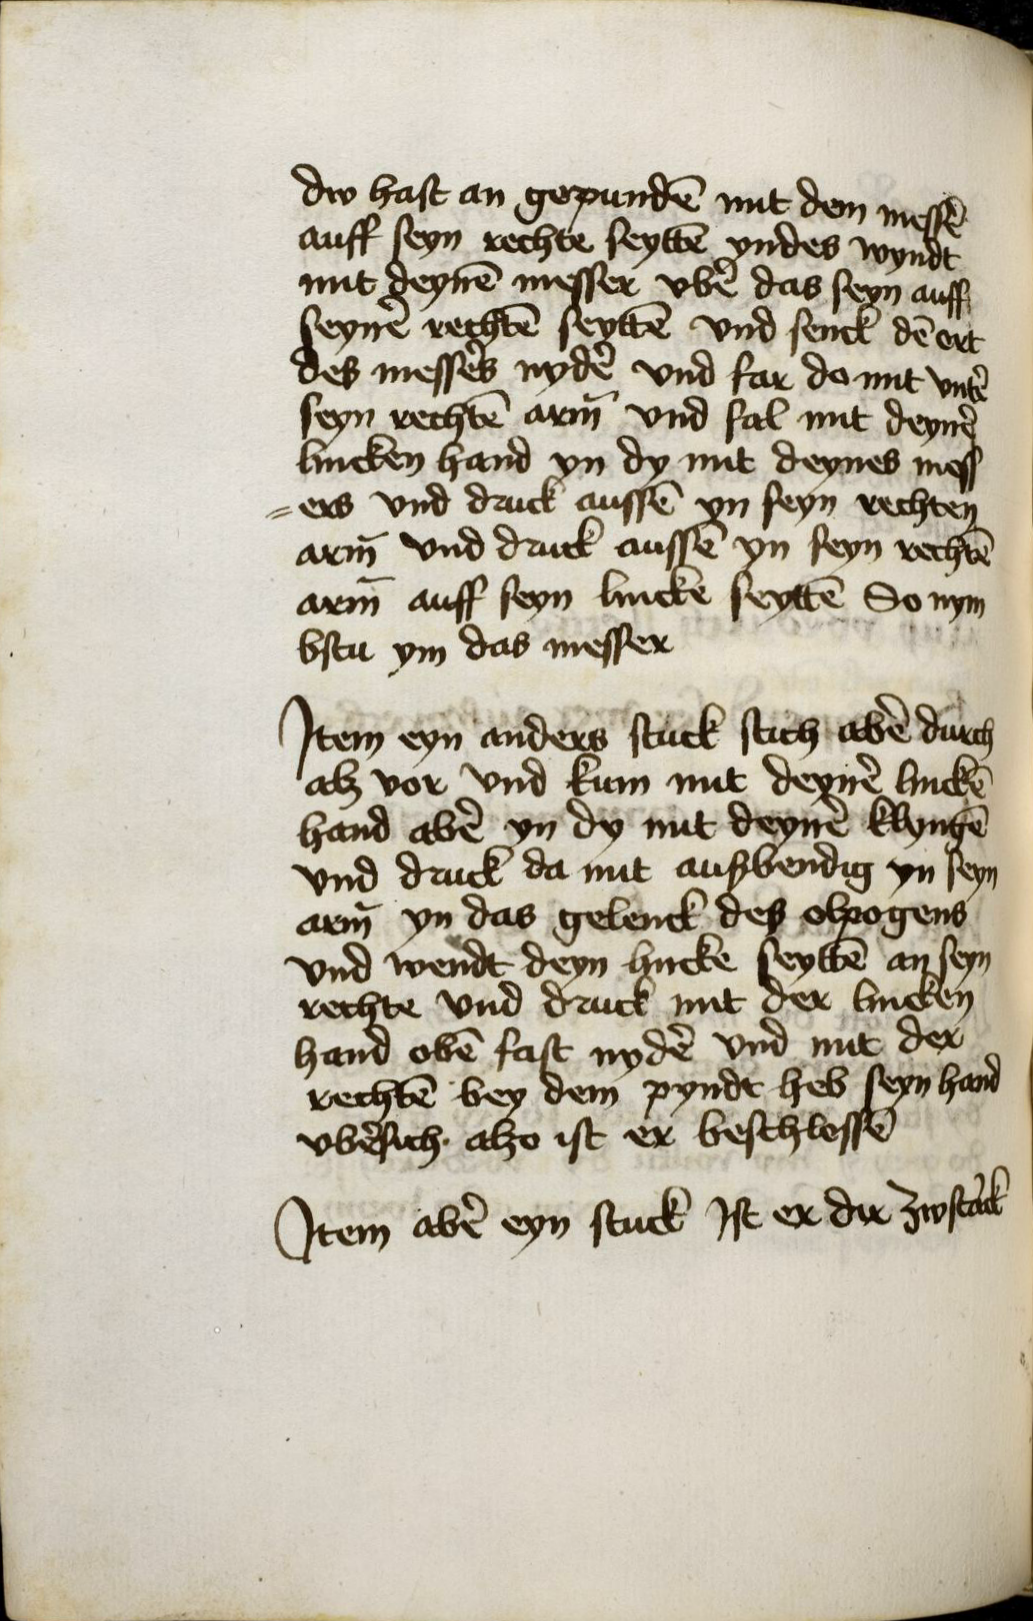 dw hast an gepundē mit dem messē
auff seyn rechte seyttē yndes wyndt
mit deynē messer vbē das seyn auff
seynē rechtē seyttē vnd senck dē ort
des messēs nydē vnd far do mit vntē
seyn rechtē arm̄ vnd fal mit deynē
lincken hand yn dy mit deynes mess
=ers vnd druck aussē yn seyn rechten
arm̄ vnd druck aussē yn seyn rechtē
arm̄ auff seyn lincke seyttē So nym
bstu ym das messer
Item eyn anders stuck stich abē durch
alz vor vnd kum mit deynē linckē
hand abē yn dy mit deynē klyngē
vnd druck da mit außbendig yn seyn
arm̄ yn das gelenck des elpogens
vnd wendt deyn lincke seyttē an seyn
rechte vnd druck mit der lincken
hand obē fast nydē vnd mit der
rechtē bey dem pyndt heb seyn hand
vbēsich alzo ist er beschlossē
Item abē eyn stuck Ist er dir zw starck